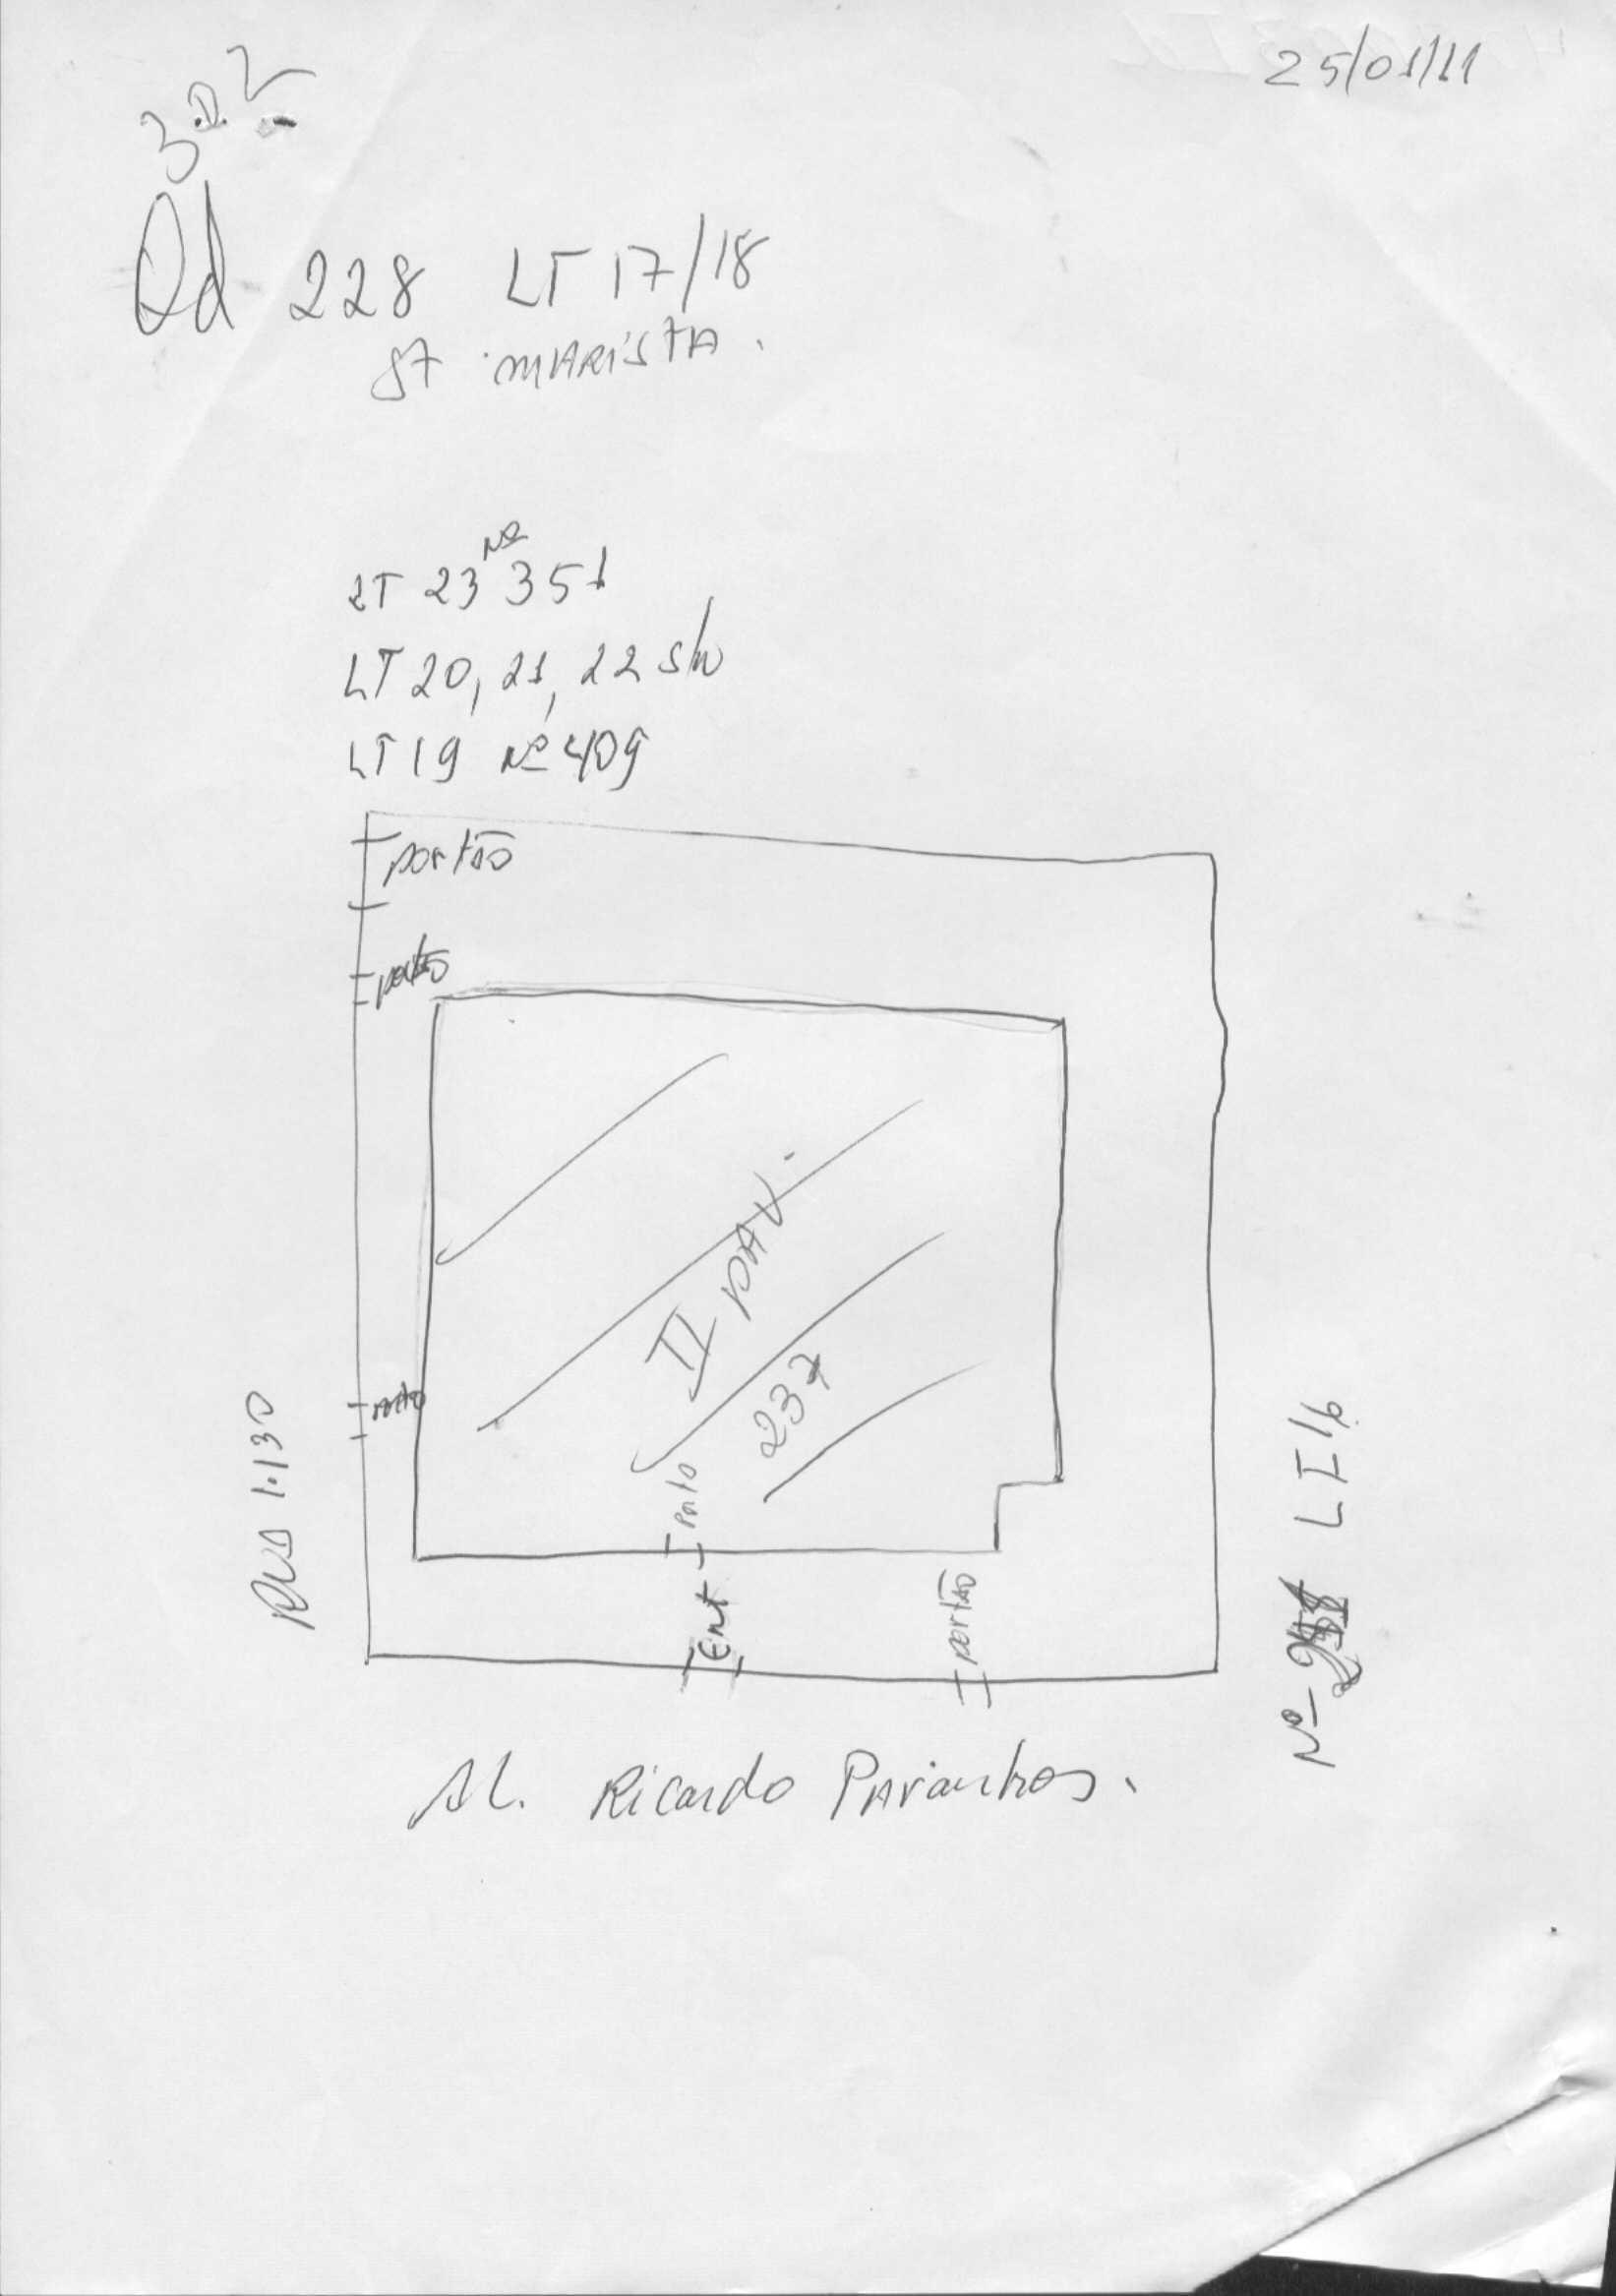 25/01/11
Qd 228 LT 17/18
ST MARISTA.
Nº
LT 23 351
LT 20, 21, 22 s/n
LT 19 Nº 409
portão
portão
II PAV.
237
porto
Ent
portão
RUA 1.130
Nº LT 16
AL. Ricardo Paranhos.